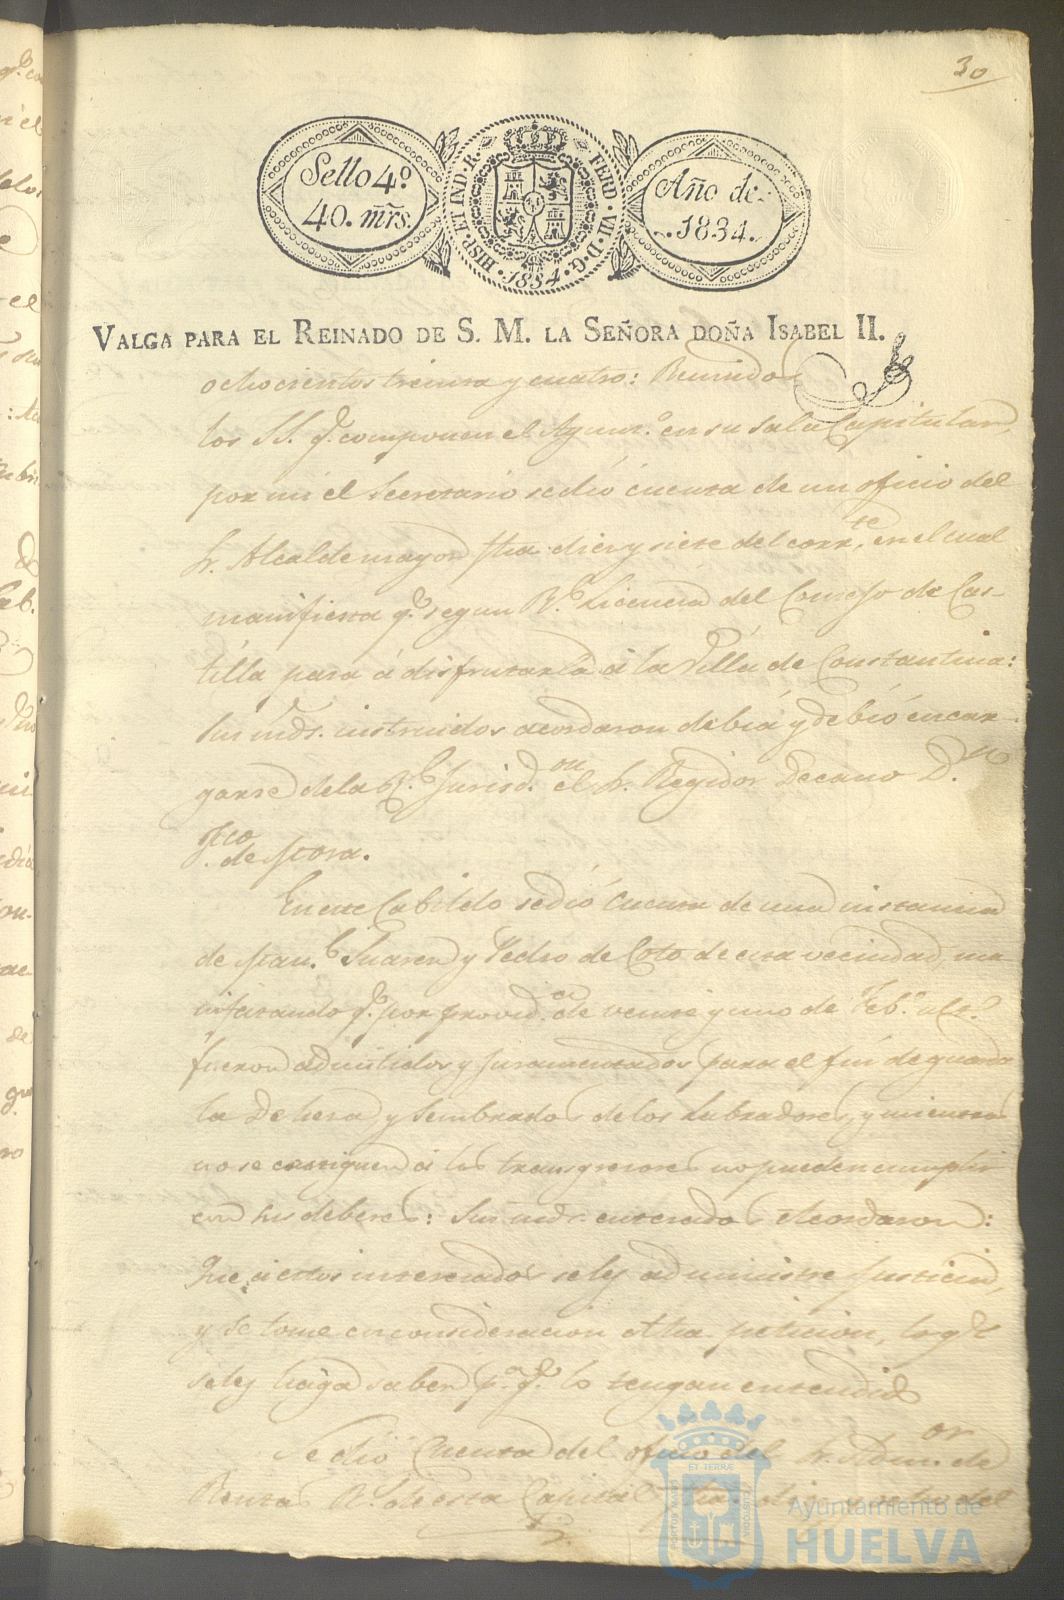 30
Sello 4º
40. mrs.
HISP. ET IND. R. FERD. VII. D. G. 1834.
Año de
1834.
VALGA PARA EL REINADO DE S. M. LA SEÑORA DOÑA ISABEL II.
ochocientos treinta y cuatro: Reunidos
los SS. q.e componen el Ayunt.o en su sala Capitular,
por mi el Secretario se dió cuenta de un oficio del
Sr. Alcalde mayor fha. diez y siete del corr.te, en el cual
manifiesta q.e segun R.l Licencia del Consejo de Cas-
tilla pasa á disfrutarla á la Villa de Constantina:
Sus mds. instruidos acordaron debia y debió encar-
garse de la R.l Jurisd.on el Sr. Regidor Decano D.n
Fco. de Mora.
En este Cabildo se dió cuenta de una instancia
de Man.l Suarez y Pedro de Coto de esta vecindad, ma-
nifestando q.e por provid.a de veinte y uno de Feb.o ult.o
fueron admitidos y juramentados para el fin de guardar
la Dehesa y Sembrados de los Labradores, y mientras
no se castiguen á los transgresores no pueden cumplir
con sus deberes: Sus mds. enterados Acordaron:
Que á estos interesados se les administre Justicia,
y se tome en consideracion dha. peticion, lo q.e
se les haga saber p.a q.e lo tengan entendido
Se dió Cuenta del oficio del Sr. Adm.or de
Rentas R.s de esta Capital fha. diez y ocho del
PORTUS MARIS ET TERRÆ CUSTODIA
Ayuntamiento de
HUELVA